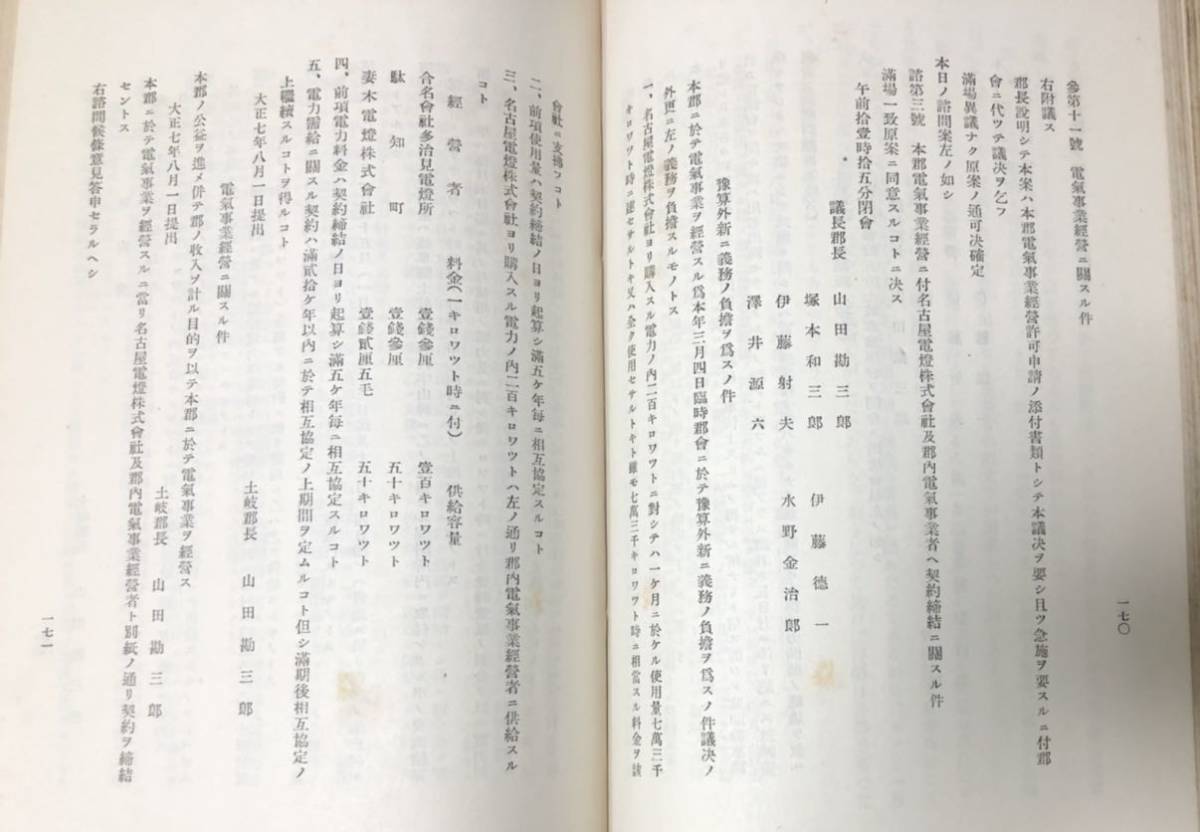 一七〇
參第十一號　電氣事業經營ニ關スル件
右附議ス
郡長說明シテ本案ハ本郡電氣事業經營許可申請ノ添付書類トシテ本議決ヲ要シ且ツ急施ヲ要スルニ付郡
會ニ代ツテ議決ヲ乞フ
滿場異議ナク原案ノ通可決確定
本日ノ諮問案左ノ如シ
諮第三號　本郡電氣事業經營ニ付名古屋電燈株式會社及郡內電氣事業者ヘ契約締結ニ關スル件
滿場一致原案ニ同意スルコトニ決ス
午前拾壹時拾五分閉會
議長郡長　山田勘三郎
塚本和三郎　伊藤德一
伊藤射夫　水野金治郎
澤井源六
豫算外新ニ義務ノ負擔ヲ爲スノ件
本郡ニ於テ電氣事業ヲ經營スル爲本年三月四日臨時郡會ニ於テ豫算外新ニ義務ノ負擔ヲ爲スノ件議決ノ
外更ニ左ノ義務ヲ負擔スルモノトス
一、名古屋電燈株式會社ヨリ購入スル電力ノ內二百キロワツトニ對シテハ一ケ月ニ於ケル使用量七萬三千
キロワツト時ニ達セサルトキ又ハ全ク使用セサルトキト雖モ七萬三千キロワツト時ニ相當スル料金ヲ該
會社ニ支拂フコト
二、前項使用量ハ契約締結ノ日ヨリ起算シ滿五ケ年每ニ相互協定スルコト
三、名古屋電燈株式會社ヨリ購入スル電力ノ內二百キロワツトハ左ノ通リ郡內電氣事業經營者ニ供給スル
コト
經營者　料金(一キロワツト時ニ付)　供給容量
合名會社多治見電燈所　壹錢參厘　壹百キロワツト
駄知町　壹錢參厘　五十キロワツト
妻木電燈株式會社　壹錢貳厘五毛　五十キロワツト
四、前項電力料金ハ契約締結ノ日ヨリ起算シ滿五ケ年每ニ相互協定スルコト
五、電力需給ニ關スル契約ハ滿貳拾ケ年以內ニ於テ相互協定ノ上期間ヲ定ムルコト但シ滿期後相互協定ノ
上繼續スルコトヲ得ルコト
大正七年八月一日提出　土岐郡長　山田勘三郎
電氣事業經營ニ關スル件
本郡ノ公益ヲ進メ併テ郡ノ收入ヲ計ル目的ヲ以テ本郡ニ於テ電氣事業ヲ經營ス
大正七年八月一日提出　土岐郡長　山田勘三郎
本郡ニ於テ電氣事業ヲ經營スルニ當リ名古屋電燈株式會社及郡內電氣事業經營者ト別紙ノ通リ契約ヲ締結
セントス
右諮問候條意見答申セラルヘシ
一七一